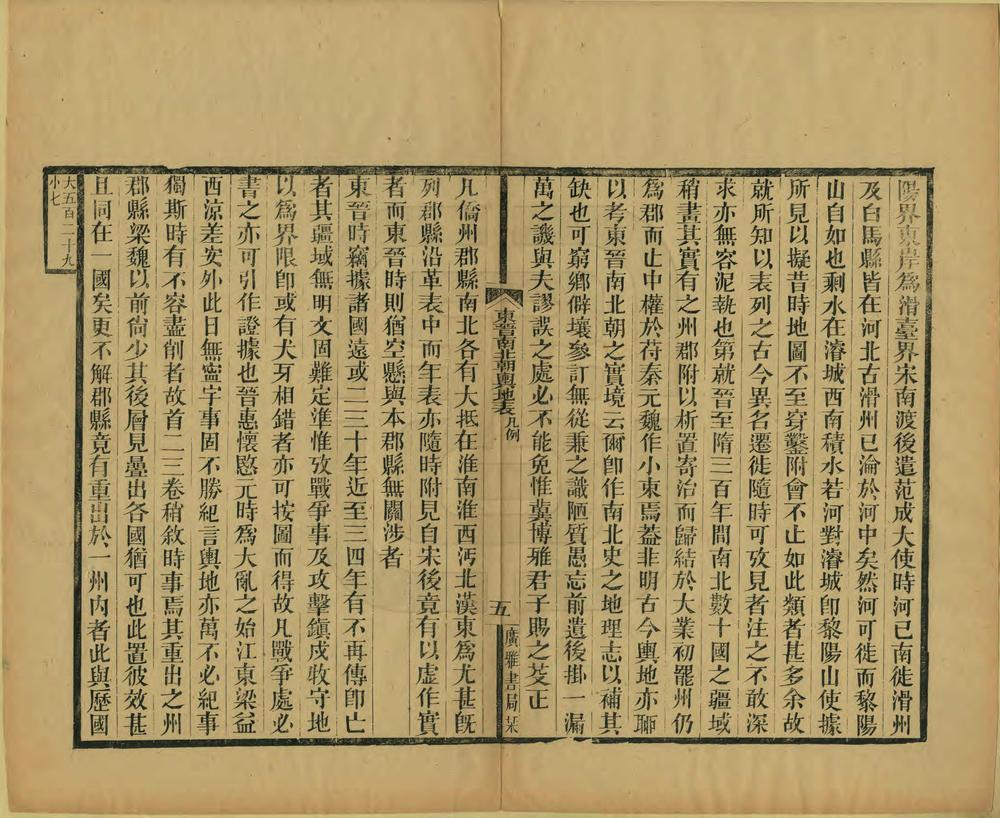 陽界東岸爲滑臺界宋南渡後遣范成大使時河已南徙滑州
及白馬縣皆在河北古滑州已淪於河中矣然河可徙而黎陽
山自如也剩水在濬城西南積水若河對濬城卽黎陽山使據
所見以擬昔時地圖不至穿鑿附會不止如此類者甚多余故
就所知以表列之古今異名遷徙隨時可攷見者注之不敢深
求亦無容泥執也第就晉至隋三百年間南北數十國之疆域
稍書其實有之州郡附以析置寄治而歸結於大業初罷州仍
爲郡而止中權於苻秦元魏作小東焉蓋非明古今輿地亦聊
以考東晉南北朝之實境云爾卽作南北史之地理志以補其
缺也可窮鄉僻壤參訂無從兼之識陋質愚忘前遺後掛一漏
萬之譏與夫謬誤之處必不能免惟冀博雅君子賜之芟正
東晉南北朝輿地表 凡例
五
廣雅書局栞
凡僑州郡縣南北各有大抵在淮南淮西沔北漢東爲尤甚旣
列郡縣沿革表中而年表亦隨時附見自宋後竟有以虛作實
者而東晉時則猶空懸與本郡縣無關涉者
東晉時竊據諸國遠或二三十年近至三四年有不再傳卽亡
者其疆域無明文固難定準惟攷戰爭事及攻擊鎭戍牧守地
以爲界限卽或有犬牙相錯者亦可按圖而得故凡戰爭處必
書之亦可引作證據也晉惠懷愍元時爲大亂之始江東梁益
西涼差安外此日無寧宇事固不勝紀言輿地亦萬不必紀事
獨斯時有不容盡削者故首二三卷稍敘時事焉其重出之州
郡縣梁魏以前尙少其後層見疊出各國猶可也此置彼效甚
且同在一國矣更不解郡縣竟有重出於一州内者此與歷國
大五百二十九
小七